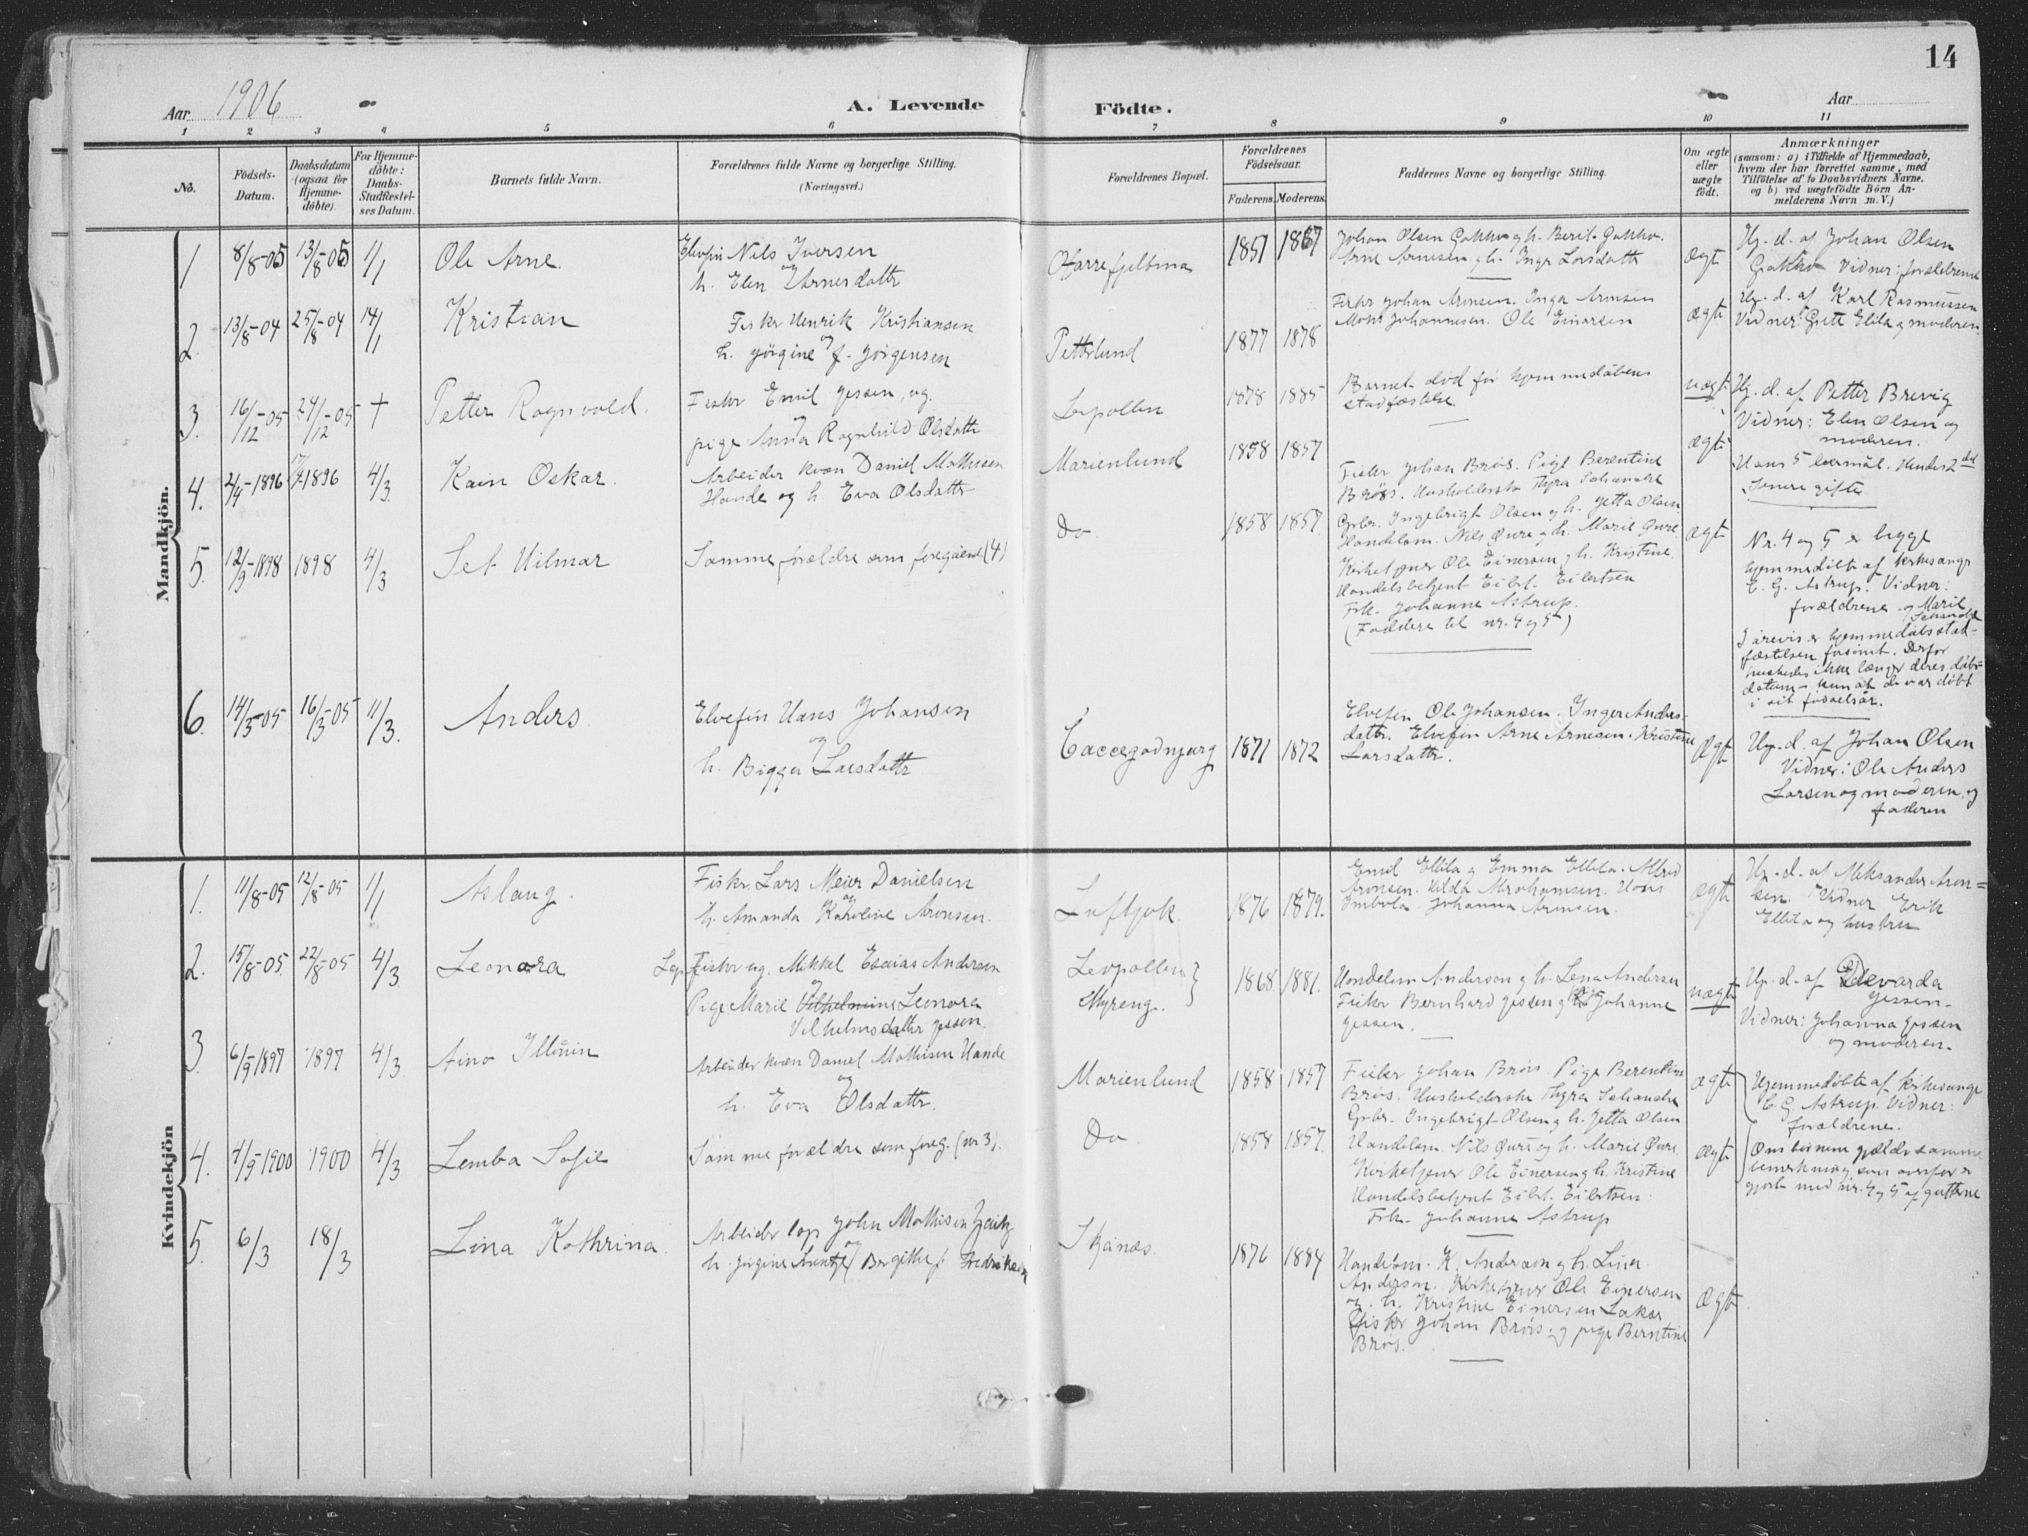 14
Aar 1906
A. Levende Födte.
Aar
1 2 3 4 5 6 7 8 9 10 11
No.
Födsels-Datum.
Daabsdatum (ogsaa for Hjemme-döbte).
For Hjemme-döbte: Daabs-Stadfæstel-ses Datum.
Barnets fulde Navn.
Forældrenes fulde Navne og borgerlige Stilling. (Næringsvei.)
Forældrenes Bopæl.
Forældrenes Födselsaar.
Faderens. Moderens.
Faddernes Navne og borgerlige Stilling.
Om ægte eller uægte födt.
Anmærkninger
(saasom: a) i Tilfælde af Hjemmedaab, hvem der har forrettet samme, med Tilföielse af to Daabsvidners Navne, og b) ved uægtefödte Börn An-melderens Navn m. V.)
Mandkjön.
1 8/8-05 13/8-05 1/1
Ole Arne.
Elvefin Nils Iversen
og
h. Elen Arnesdattr
1851 1867
Johan Olsen Gakko og h. Berit Gakko.
Arne Arnesen og h. Inga Larsdattr
ægte
Hj. d. af Johan Olsen
Gakko Vidner: forældrene
2. 13/8-04 25/8-04 14/1
Kristian
Fisker Henrik Kristiansen
og
h. Jörgine f. Jörgensen
Petterlund
1877 1878
Fisker Johan Aronsen. Inga Aronsen
Mons Johannesen. Ole Einarsen
ægte
Hj. d. af Karl Rasmussen
Vidner: Grete Ellila og moderen.
3. 16/12-05 24/12-05 +
Petter Ragnvald.
Fisker Emil Jessen, og
pige Anna Ragnhild Olsdattr
Leipollen
1878 1885
Barnet död för hjemmedåbens
stadfæstelse.
uægte
Hj. d. af Petter Brevig
Vidner: Elen Olsen og
moderen.
4. 2/4-1896 1896 4/3
Kain Oskar.
Arbeider kvæn Daniel Mathisen
Hande og h. Eva Olsdattr
Marienlund
1858 1857
Fisker Johan Brös. Pige Berentine
Brös. Husholderske Thyra Schanche
Gbr. Ingebrigt Olsen og h. Jetta Olsen
Handelsm. Nils Öure og h. Marie Öure
Kirketjener Ole Einersen og h. Kristine
Handelsbetjent Eilert Eilertsen
Frk. Johanne Astrup.
(Faddere til nr. 4 og 5)
ægte
Hans 5 barnmål. Hendes 2det
Senere gifte
5. 12/9-1898 1898 4/3
Set Hilmar
Samme forældre som foregående (4)
Do
1858 1857.
ægte
Nr. 4 og 5 er begge
hjemmedöbte af kirkesanger
C. G. Astrup. Vidner:
forældrene og Marie
Schanche
I årevis er hjemmedåbsstad-
fæstelsen forsömt. Derfor
huskedes ikke længer deres dåbs-
datum - kun at de var döbt
i sit födselsår.
6. 14/3-05 16/3-05 11/3.
Anders.
Elvefin Hans Johansen
og
h. Bigga Larsdattr
Caccegadnjarg
1871 1872
Elvefin Ole Johansen. Inger Anders-
dattr. Elvefin Arne Arnesen. Kristine
Larsdattr.
Ægte
Hj. d. af Johan Olsen
Vidner: Ole Anders
Larsen og moderen og
faderen
Kvindekjön
1. 11/8-05 12/8-05 1/1
Aslaug.
Fisker Lars Meier Danielsen
og
h. Amanda Karoline Aronsen.
Luftjok
1876 1879.
Emil Ellila og Emma Ellila. Alfred
Aronsen. Hilda Abrahamsen. Hans
Imbola Johanna Aronsen.
ægte
Hj. d. af Aleksander Aron-
sen. Vidner Erik
Ellila og hustru
2. 15/8-05. 22/8-05 4/3
Leonora
Lap. Fisker ug. Mikkel Esaias Andersen
og
Pige Marie Vilhelmine Leonora
Vilhelmsdattr Jessen.
Leipollen
Myreng.
1868 1881.
Handelsm Andersen og h. Lina Andersen
Fisker Bernhard Jessen og Johanne
Jessen.
uægte
Hj. d. af Edevarda
Jessen.
Vidner: Johanna Jessen
og moderen.
3. 6/9 1897 1897 4/3.
Aino
Arbeider kvæn Daniel Mathisen Hande
og
h. Eva Olsdattr.
Marienlund
1858 1857
Fisker Johan Brös. Pige Berentine
Brös. Husholderske Thyra Schanche
Gbr. Ingebrigt Olsen og h. Jetta Olsen
Handelsm. Nils Öure og h. Marie Öure
Kirketjener Ole Einersen og h. Kristine
Handelsbetjent Eilert Eilertsen.
Frk. Johanne Astrup
ægte
Hjemmedöbte af kirkesanger
C. G. Astrup. Vidner:
forældrene.
4. 4/9 1900 1900 4/3
Lemba Sofie
Samme forældre som foreg. (nr 3).
Do
1858 1857.
ægte
Om börnene gjælder samme
bemerkning som ovenfor er
gjort med nr. 4 og 5 af gutterne
5. 6/3 18/3
Lina Kathrina.
Arbeider lap John Mathisen
og
h. Jörgine Bergitte f. Fredriksen
Skånæs.
1876 1884
Handelsm. K. Andersen og h. Lina
Andersen. Kirketjener Ole Einersen
og h. Kristine Einersen
Fisker Johan Brös og pige Berntine
Brös.
Ægte